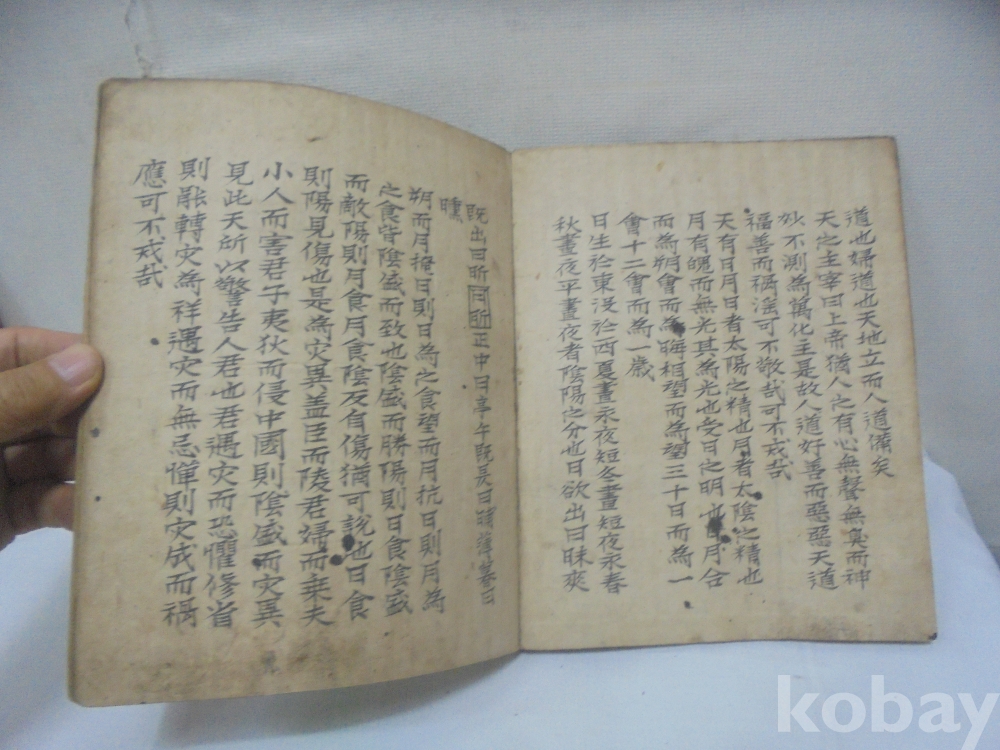 道也婦道也天地立而人道備矣
天之主宰曰上帝猶人之有心無聲無臭而神
妙不測為萬化主是故人道好善而惡惡天道
福善而禍滛可不敬哉可不戒哉
天有日月日者太陽之精也月者太陰之精也
月有魄而無光其為光也受日之明也日月合
而為朔會而為晦相望而為望三十日而為一
會十二會而為一歲
日生於東沒於西夏晝永夜短冬晝短夜永春
秋晝夜平晝夜者陰陽之分也日欲出曰昧爽
既出曰昕同昕正中曰亭午既昃曰晡薄暮曰
曛
朔而月掩日則日為之食望而月抗日則月為
之食皆陰盛而致也陰盛而勝陽則日食陰盛
而敵陽則月食月食陰反自傷猶可說也日食
則陽見傷也是為灾異盖臣而陵君婦而乗夫
小人而害君子夷狄而侵中國則陰盛而灾異
見此天所以警告人君也君遇灾而恐懼修省
則能轉灾為祥遇灾而無忌憚則灾成而禍
應可不戒哉
kobay